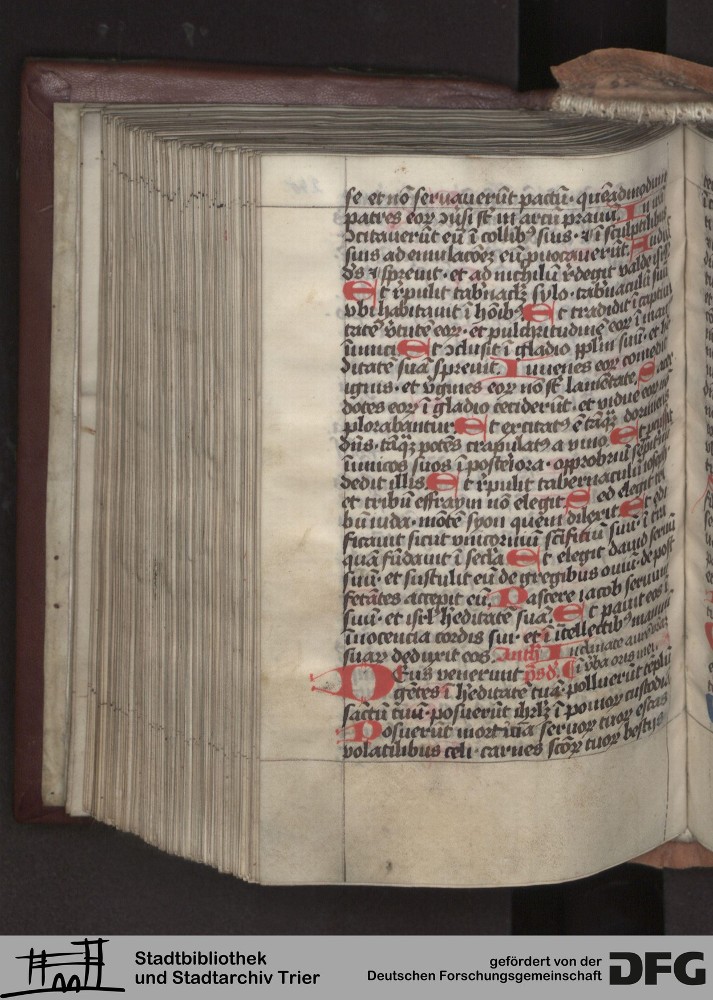 se et nō seruauerūt pactū · quēadmodum
patres eor ↄuſi st in arcū prauū. In irā
ↄcitauerūt eū ī collibꝫ suis · et ī sculptilibus
suis ad emulacōeꝫ eū ꝓuocauerūt. Audiu
d's et spreuit · et ad nichilū redegit valde isrl
Et repulit tab'nacl'ꝫ sylo · tab'naculū suū
vbi habitauit ī hōibꝫ Et tradidit ī captiui
tatē v'tutē eor · et pulchritudinē eor ī man
inimici Et ↄclusit ī gladio pplm suū · et he
ditatē suā spreuit. Iuuenes eor comedit
ignis · et v'gines eor nō st lamētate. Sacer
dotes eor ī gladio ceciderūt · et vidue eor nō
plorabantur. Et excitatꝰ ē tāqꝫ dormiens
dn̄s · tāqꝫ potēs crapulatꝰ a vino. Et percussit
inimicos suos ī posteriora · opprobriū sempit'nū
dedit illis. Et repulit tabernaculū ioseph
et tribū effraym nō elegit Sed elegit tri
bū iuda · mōtē syon quem dilexit Et edi
ficauit sicut vnicornuū scīficiū suū · ī t'ra
quā fūdauit ī secl'a Et elegit dauid seruū
suū · et sustulit eū de gregibus ouiū · de post
fetātes accepit eū. Pascere iacob seruum
suū · et isrl' heditatē suā. Et pauit eos ī
īnocencia cordis sui · et ī ītellectibꝫ manuū
suar deduxit eos. Anth Inclinate aurē vr̄am
Deus venerunt ps'd. ī v'ba oris mei.
gētes ī heditatē tuā · polluerūt templū
sāctū tuū · posuerūt ihrlꝫ ī pomor custodiā
Posuerūt morticīia seruor tuor escas
volatilibus celi · carnes sc̄or tuor bestijs
Stadtbibliothek
und Stadtarchiv Trier
gefördert von der
Deutschen Forschungsgemeinschaft
DFG